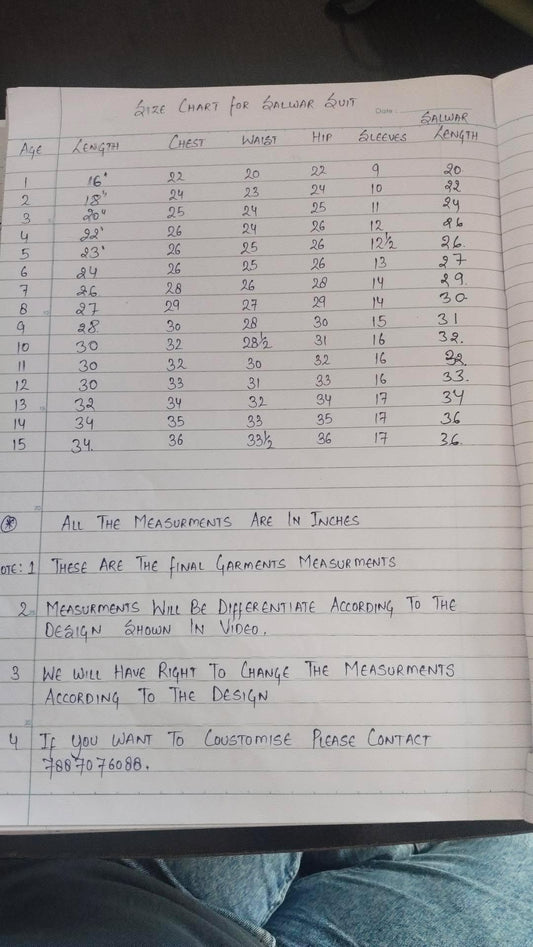 SIZE CHART FOR SALWAR SUIT
Date:
AGE LENGTH CHEST WAIST HIP SLEEVES SALWAR LENGTH
1 16" 22 20 22 9 20
2 18" 24 23 24 10 22
3 20" 25 24 25 11 24
4 22" 26 24 26 12 26
5 23" 26 25 26 12½ 26.
6 24 26 25 26 13 27
7 26 28 26 28 14 29.
8 27 29 27 29 14 30
9 28. 30 28 30 15 31
10 30 32 28½ 31 16 32.
11 30 32 30 32 16 32.
12 30 33 31 33 16 33.
13 32 34 32 34 17 34
14 34 35 33 35 17 36
15 34. 36 33½ 36 17 36.
* ALL THE MEASURMENTS ARE IN INCHES
OTE: 1 THESE ARE THE FINAL GARMENTS MEASURMENTS
2 MEASURMENTS WILL BE DIFFERENTIATE ACCORDING TO THE
DESIGN SHOWN IN VIDEO.
3 WE WILL HAVE RIGHT TO CHANGE THE MEASURMENTS
ACCORDING TO THE DESIGN
4 IF YOU WANT TO COUSTOMISE PLEASE CONTACT
7887076088.